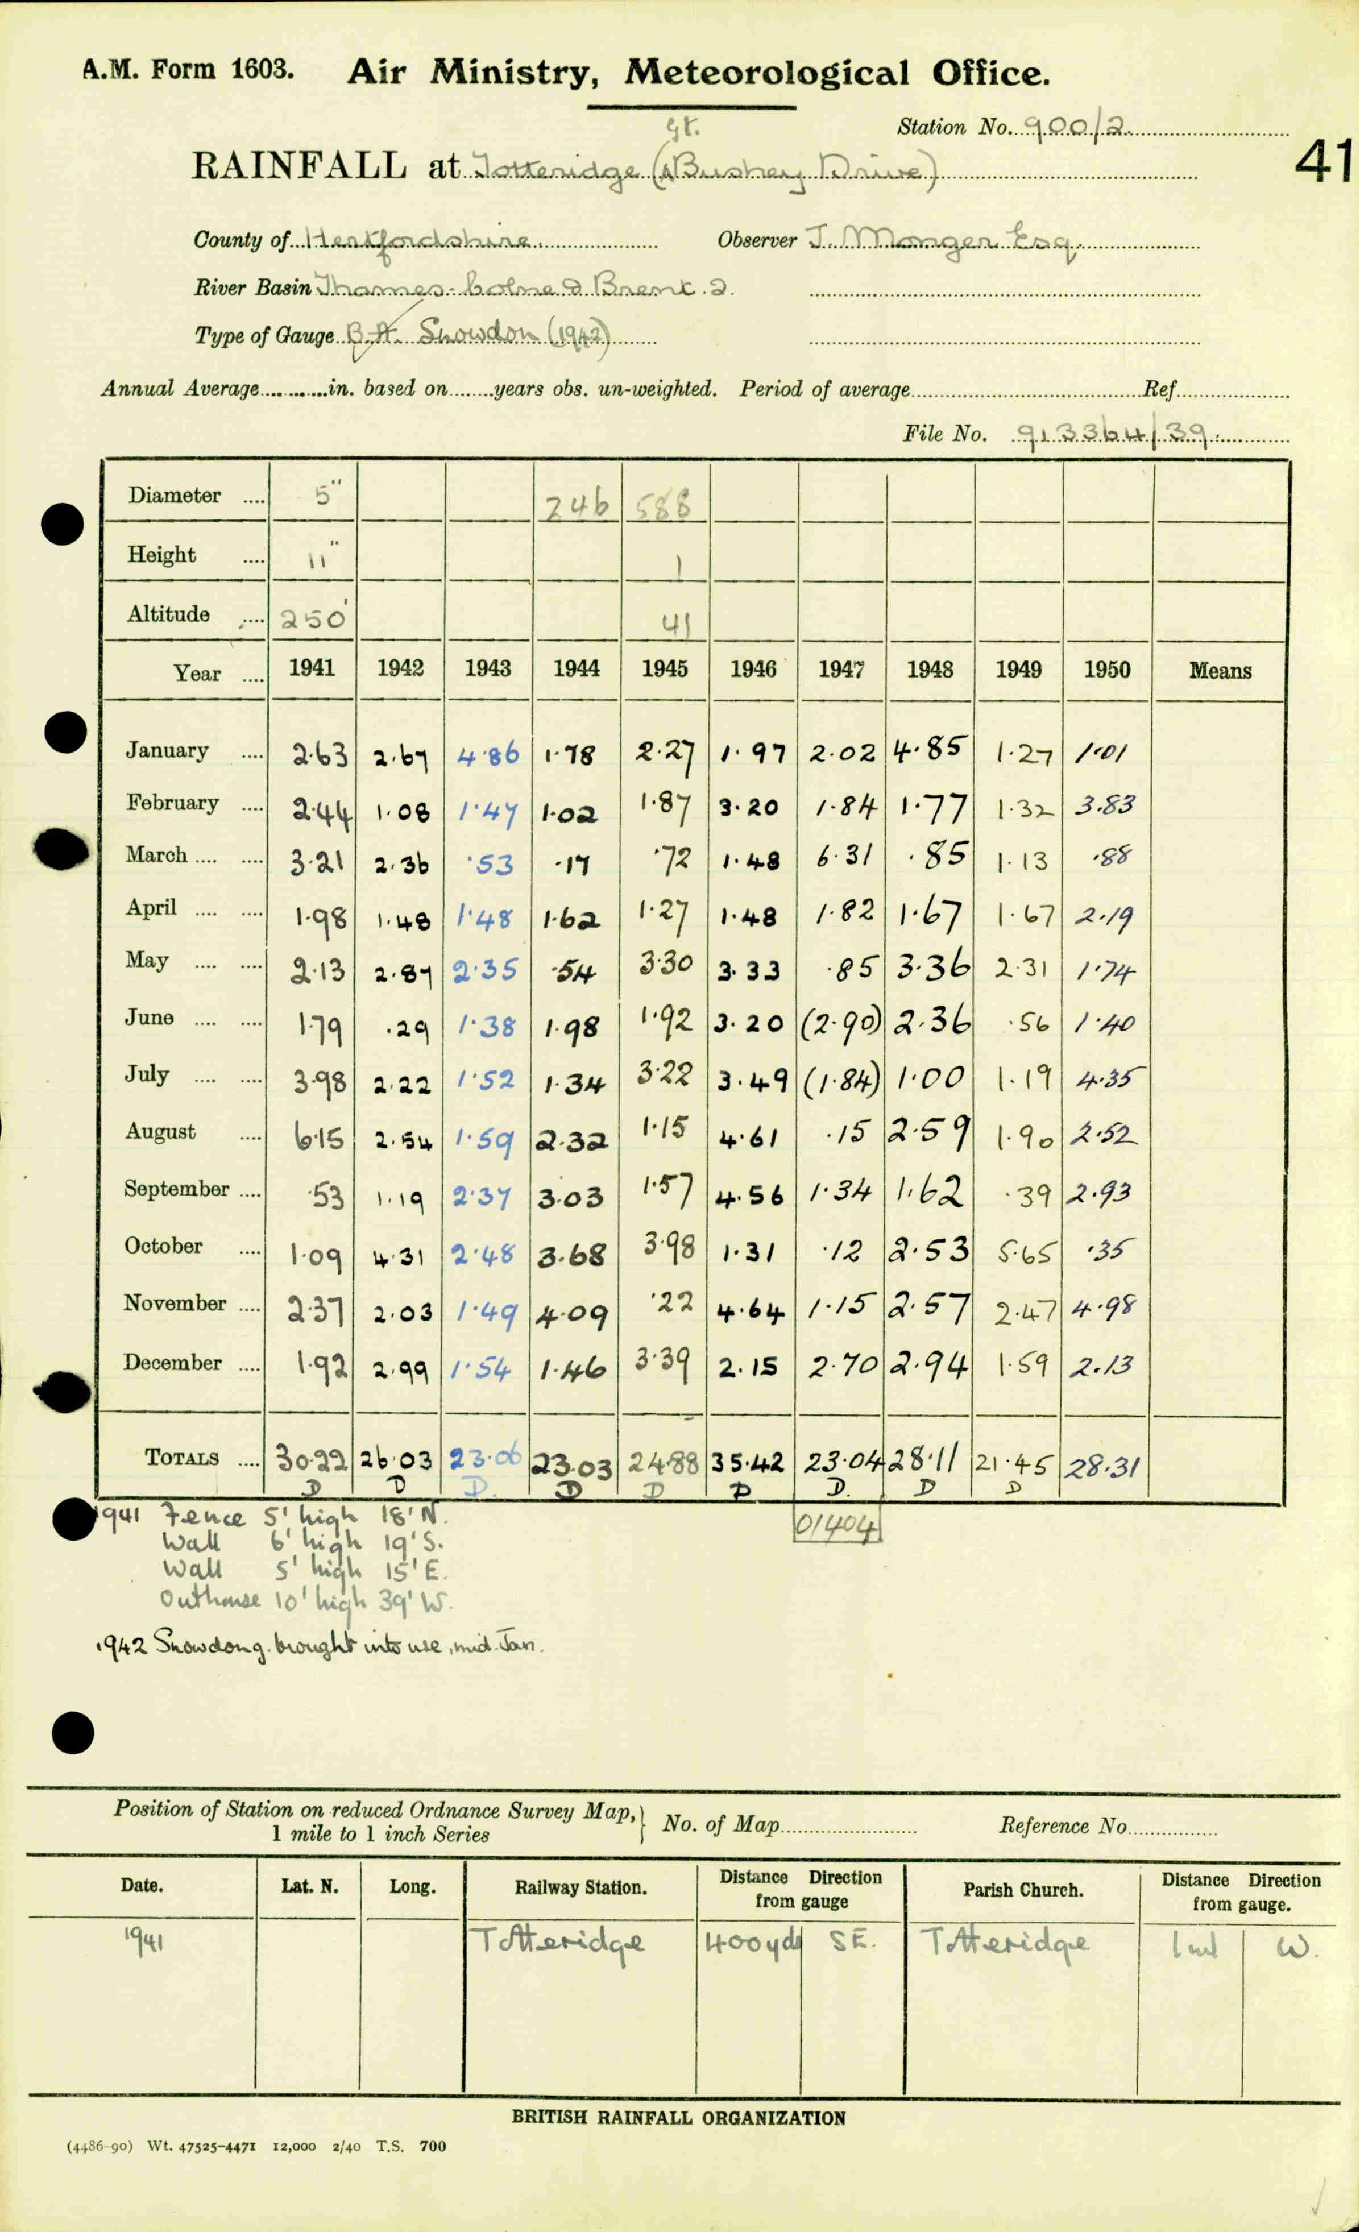 A.M. Form 1603. Air Ministry, Meteorological Office.
Station No. 900/2
41
Gt.
RAINFALL at Totteridge (Bushey Drive)
County of Hertfordshire Observer J. Monger Esq.
River Basin Thames-Colne & Brent. 2.
Type of Gauge B.A. Snowdon (1942)
Annual Average in. based on years obs. un-weighted. Period of average Ref
File No. 913364/39
Diameter 5" 246 588
Height 11" 1
Altitude 250' 41
Year 1941 1942 1943 1944 1945 1946 1947 1948 1949 1950 Means
January 2.63 2.67 4.86 1.78 2.27 1.97 2.02 4.85 1.27 1.01
February 2.44 1.08 1.47 1.02 1.87 3.20 1.84 1.77 1.32 3.83
March 3.21 2.36 .53 .17 .72 1.48 6.31 .85 1.13 .88
April 1.98 1.48 1.48 1.62 1.27 1.48 1.82 1.67 1.67 2.19
May 2.13 2.87 2.35 .54 3.30 3.33 .85 3.36 2.31 1.74
June 1.79 .29 1.38 1.98 1.92 3.20 (2.90) 2.36 .56 1.40
July 3.98 2.22 1.52 1.34 3.22 3.49 (1.84) 1.00 1.19 4.35
August 6.15 2.54 1.59 2.32 1.15 4.61 .15 2.59 1.90 2.52
September .53 1.19 2.37 3.03 1.57 4.56 1.34 1.62 .39 2.93
October 1.09 4.31 2.48 3.68 3.98 1.31 .12 2.53 5.65 .35
November 2.37 2.03 1.49 4.09 .22 4.64 1.15 2.57 2.47 4.98
December 1.92 2.99 1.54 1.46 3.39 2.15 2.70 2.94 1.59 2.13
TOTALS 30.22 26.03 23.06 23.03 24.88 35.42 23.04 28.11 21.45 28.31
D D D. D D D D. D D
1941 Fence 5' high 18' N. 01404
Wall 6' high 19' S.
Wall 5' high 15' E.
Outhouse 10' high 39' W.
1942 Snowdon g. brought into use, mid. Jan.
Position of Station on reduced Ordnance Survey Map, No. of Map Reference No.
1 mile to 1 inch Series
Date. Lat. N. Long. Railway Station. Distance Direction from gauge Parish Church. Distance Direction from gauge.
1941 Totteridge 400 yds SE. Totteridge 1 ml W.
BRITISH RAINFALL ORGANIZATION
(4486-90) Wt. 47525-4471 12,000 2/40 T.S. 700